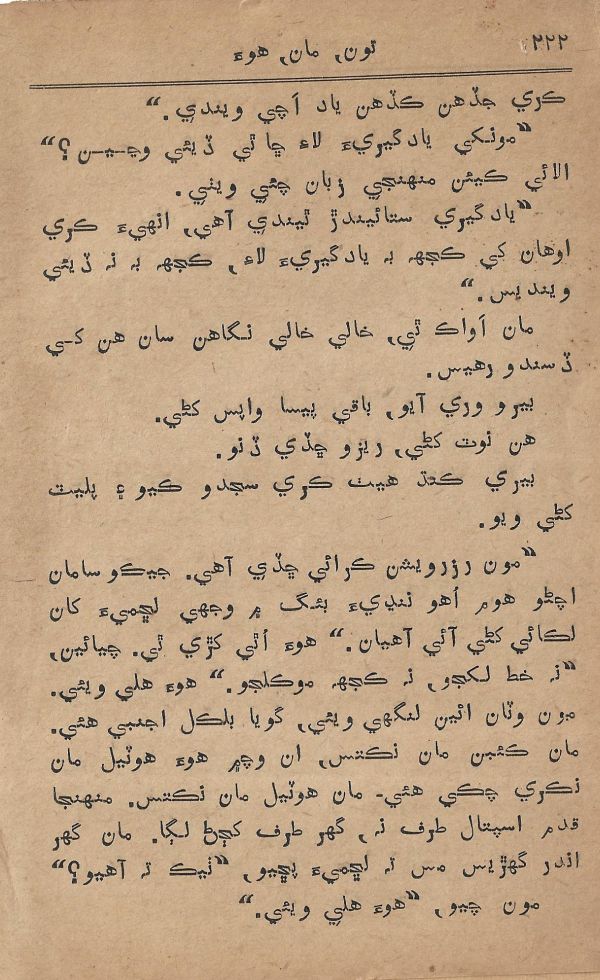 ۲۲۲
تون, مان, هوءَ
ڪري جڏهن ڪڏهن ياد اَچي ويندي.“
”مونکي يادگيريءَ لاءِ ڇا ٿي ڏيئي وڃـيـن؟“
الائي ڪيئن منهنجي زبان چئي ويٺي.
”يادگيري ستائيندڙ ٿيندي آهي, انهيءَ ڪري
اوهان کي ڪجهہ بہ يادگيريءَ لاءِ, ڪجهہ بہ نہ ڏيئي
وينديس.“
مان اَواڪ ٿي, خالي خالي نگاهن سان هن کـي
ڏسندو رهيس.
بيرو وري آيو, باقي پيسا واپس کڻي.
هن نوٽ کڻي, ريزو ڇڏي ڏنو.
بيري ڪنڌ هيٺ ڪري سجدو ڪيو ۽ پليٽ
کڻي ويو.
”مون رزرويشن ڪرائي ڇڏي آهي. جيڪو سامان
اچڻو هوم اُهو ننڍيءَ بئگ ۾ وجهي لڇميءَ کان
لڪائي کڻي آئي آهيان.“ هوءَ اُٿي کڙي ٿي. چيائين,
”نہ خط لکجو, نہ ڪجهہ موڪلجو.“ هوءَ هلي ويئي.
مون وٽان ائين لنگهي ويئي, گويا بلڪل اجنبي هئي.
مان ڪئبن مان نڪتس, ان وچ۾ هوءَ هوٽيل مان
نڪري چڪي هئي۔ مان هوٽيل مان نڪتس. منهنجا
قدم اسپتال طرف نہ, گهر طرف کڄڻ لڳا. مان گهر
اندر گهڙيس مس تہ لڇميءَ پڇيو, ”ٺيڪ تہ آهيو؟“
مون چيو, ”هوءَ هلي ويئي.“